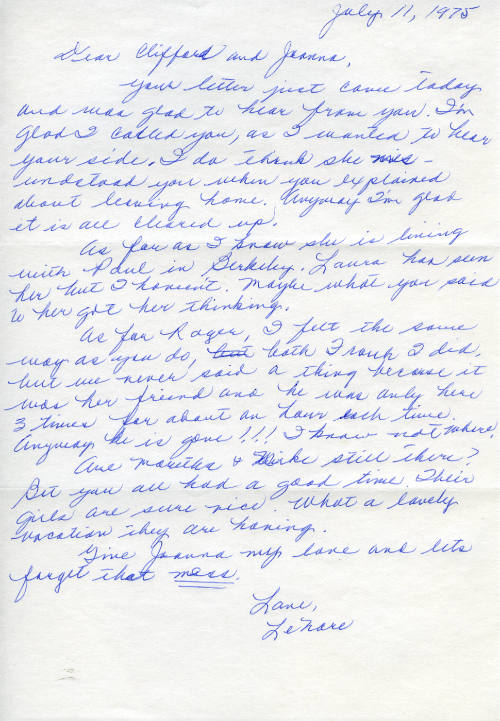 July 11, 1975
Dear Clifford and Joanna,
Your letter just came today
and was glad to hear from you. I'm
glad I called you, as I wanted to hear
your side. I do think she mis-
understood you when you explained
about leaving home. Anyway I'm glad
it is all cleared up.
As far as I know she is living
with Paul in Berkeley. Laura has seen
her but I haven't. Maybe what you said
to her got her thinking.
As for Roger, I felt the same
way as you do, both Troup & I did,
but we never said a thing because it
was her friend and he was only here
3 times for about an hour each time.
Anyway he is gone!!! I know not where.
Are Maretha & still there?
Bet you all had a good time. Their
girls are sure nice. What a lovely
vacation they are having.
Give Joanna my love and lets
forget that mess.
Love,
LeNore